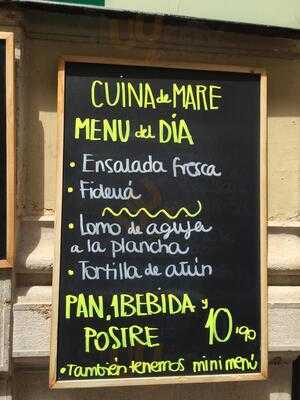 CUINA de MARE
MENU del DÍA
• Ensalada fresca
• Fideuá
• Lomo de aguja
a la plancha
• Tortilla de atún
PAN, 1BEBIDA y
POSTRE 10'90
• También tenemos mini menú